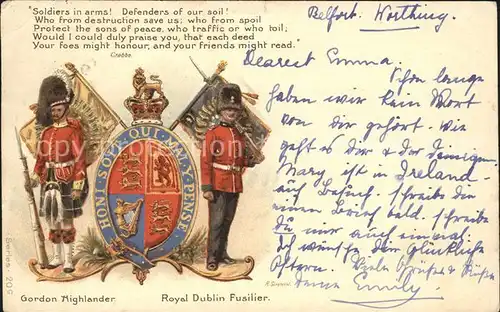 "Soldiers in arms! Defenders of our soil!
Who from destruction save us; who from spoil
Protect the sons of peace, who traffic or who toil;
Would I could duly praise you, that each deed
Your foes might honour, and your friends might read."
Crabbe.
Belfort. Worthing.
Dearest Emma.
Schon lange
haben wir kein Wort
von dir gehört. Wie
geht es dir & der deinigen.
Mary ist in Ireland
auf Besuch. Schreibe dir
einen Brief bald. Schreibe
du mir auch einmal
Ich wünsche dir Glückliche
Ostern. Viele Grüße & Küße
deine Emily.
HONI SOIT QUI MAL Y PENSE
Series 205
Gordon Highlander.
Royal Dublin Fusilier.